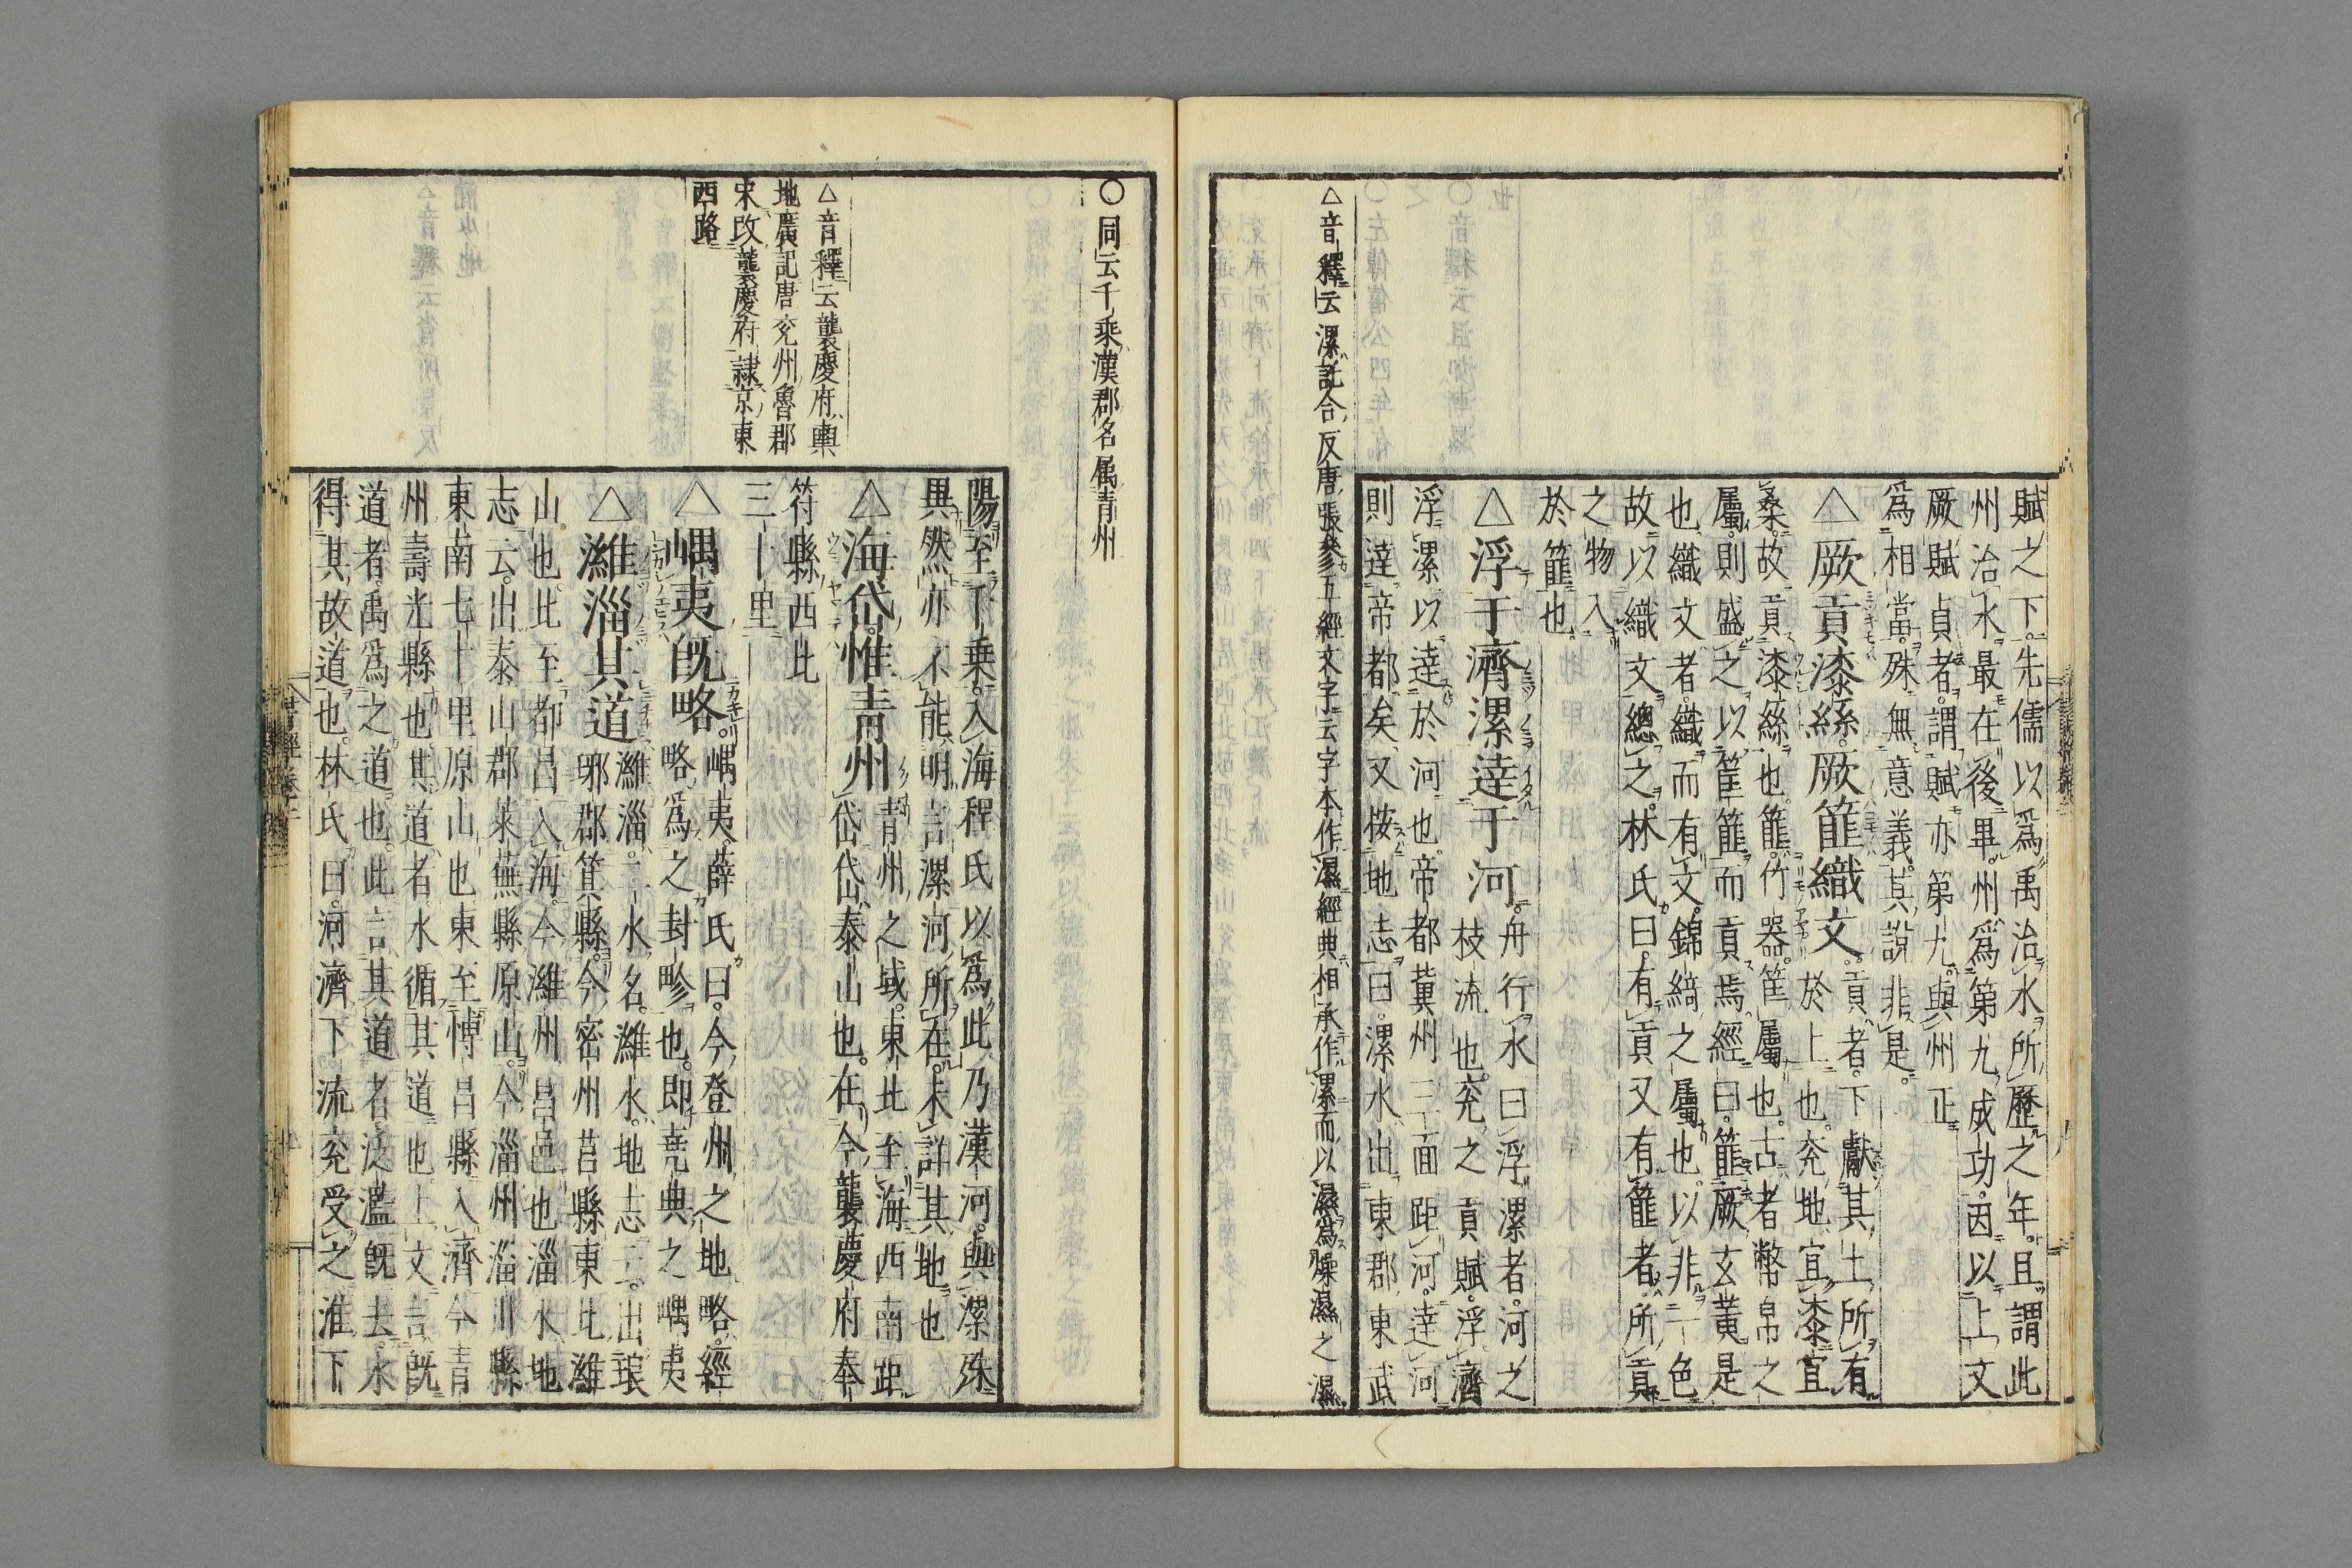 賦之下先儒以爲禹治水所歷之年且謂此
州治水最在後畢州爲第九成功因以上文
厥賦貞者謂賦亦第九與州正
爲相當殊無意義其說非是
△厥貢漆絲厥篚織文貢者下獻其土所有
於上也兗地宜漆宜
桑故貢漆絲也篚竹器筐屬也古者幣帛之
屬則盛之以筐篚而貢焉經曰篚厥玄黃是
也織文者織而有文錦綺之屬也以非一色
故以織文總之林氏曰有貢又有篚者所貢
之物入
於篚也
△浮于濟漯達于河舟行水曰浮漯者河之
枝流也兗之貢賦浮濟
浮漯以達於河也帝都冀州三面距河達河
則達帝都矣又按地志曰漯水出東郡東武
△音釋云漯託合反唐張參五經文字云字本作濕經典相承作漯而以濕爲燥濕之濕
〇同云千乘漢郡名属青州
陽至千乘入海程氏以爲此乃漢河與漯殊
異然亦不能明言漯河所在未詳其地也
△海岱惟青州青州之域東北至海西南距
岱岱泰山也在今襲慶府奉
符縣西北
三十里
△嵎夷旣略嵎夷薛氏曰今登州之地略經
略爲之封畛也即堯典之嵎夷
△濰淄其道濰淄二水名濰水地志云出琅
邪郡箕縣今密州莒縣東北濰
山也北至都昌入海今濰州昌邑也淄水地
志云出泰山郡萊蕪縣原山今淄州淄川縣
東南七十里原山也東至博昌縣入濟今青
州壽光縣也其道者水循其道也上文言旣
道者禹爲之道也此言其道者泛濫旣去水
得其故道也林氏曰河濟下流兗受之淮下
△音釋云襲慶府輿
地廣記唐兗州魯郡
宋改襲慶府隷京東
西路